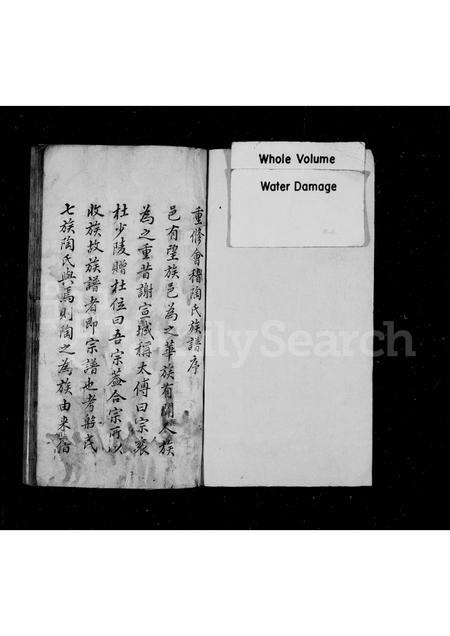 Whole Volume
Water Damage
重修會稽陶氏族譜序
邑有望族邑為之華族有聞人族
為之重昔謝宣城稱太傅曰宗袞
杜少陵贈杜位曰吾宗蓋合宗所以
收族故族譜者即宗譜也考殷民
七族陶氏與焉則陶之為族由来舊
FamilySearch